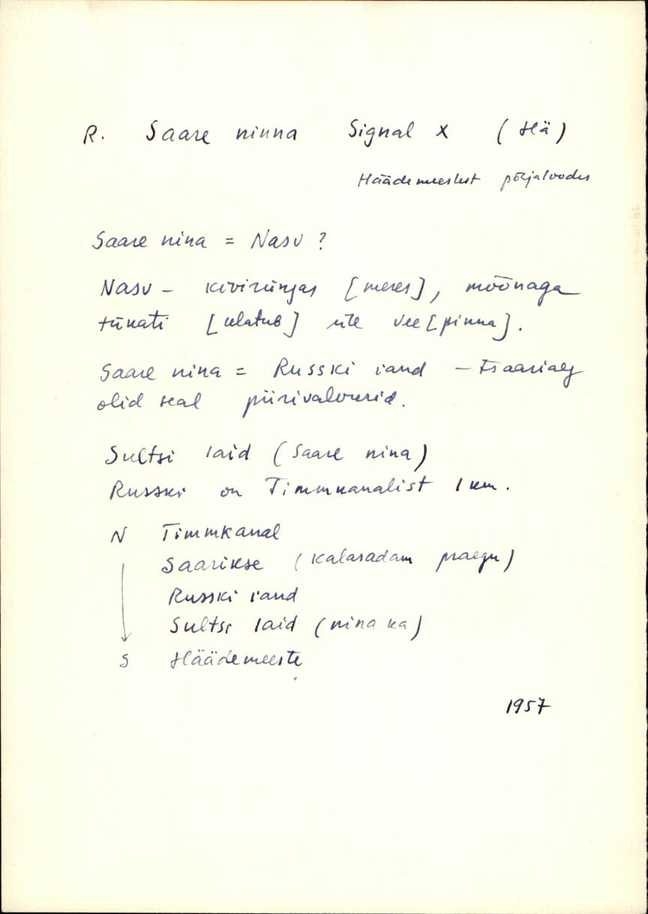 R. Saare ninna Signal x (Hä)
Häädemeestest põhjaloodes
Saare nina = Nasv ?
Nasv - kivirünjas [meres], mõõnaga
tükati [ulatub] üle vee[pinna].
Saare nina = Russki rand - tsaariaeg
olid seal piirivalvurid.
Sultsi laid (Saare nina)
Russki on Timmkanalist 1 km.
N Timmkanal
Saarikse (kalasadam praegu)
Russki rand
Sultsi laid (nina ka)
S Häädemeeste
1957